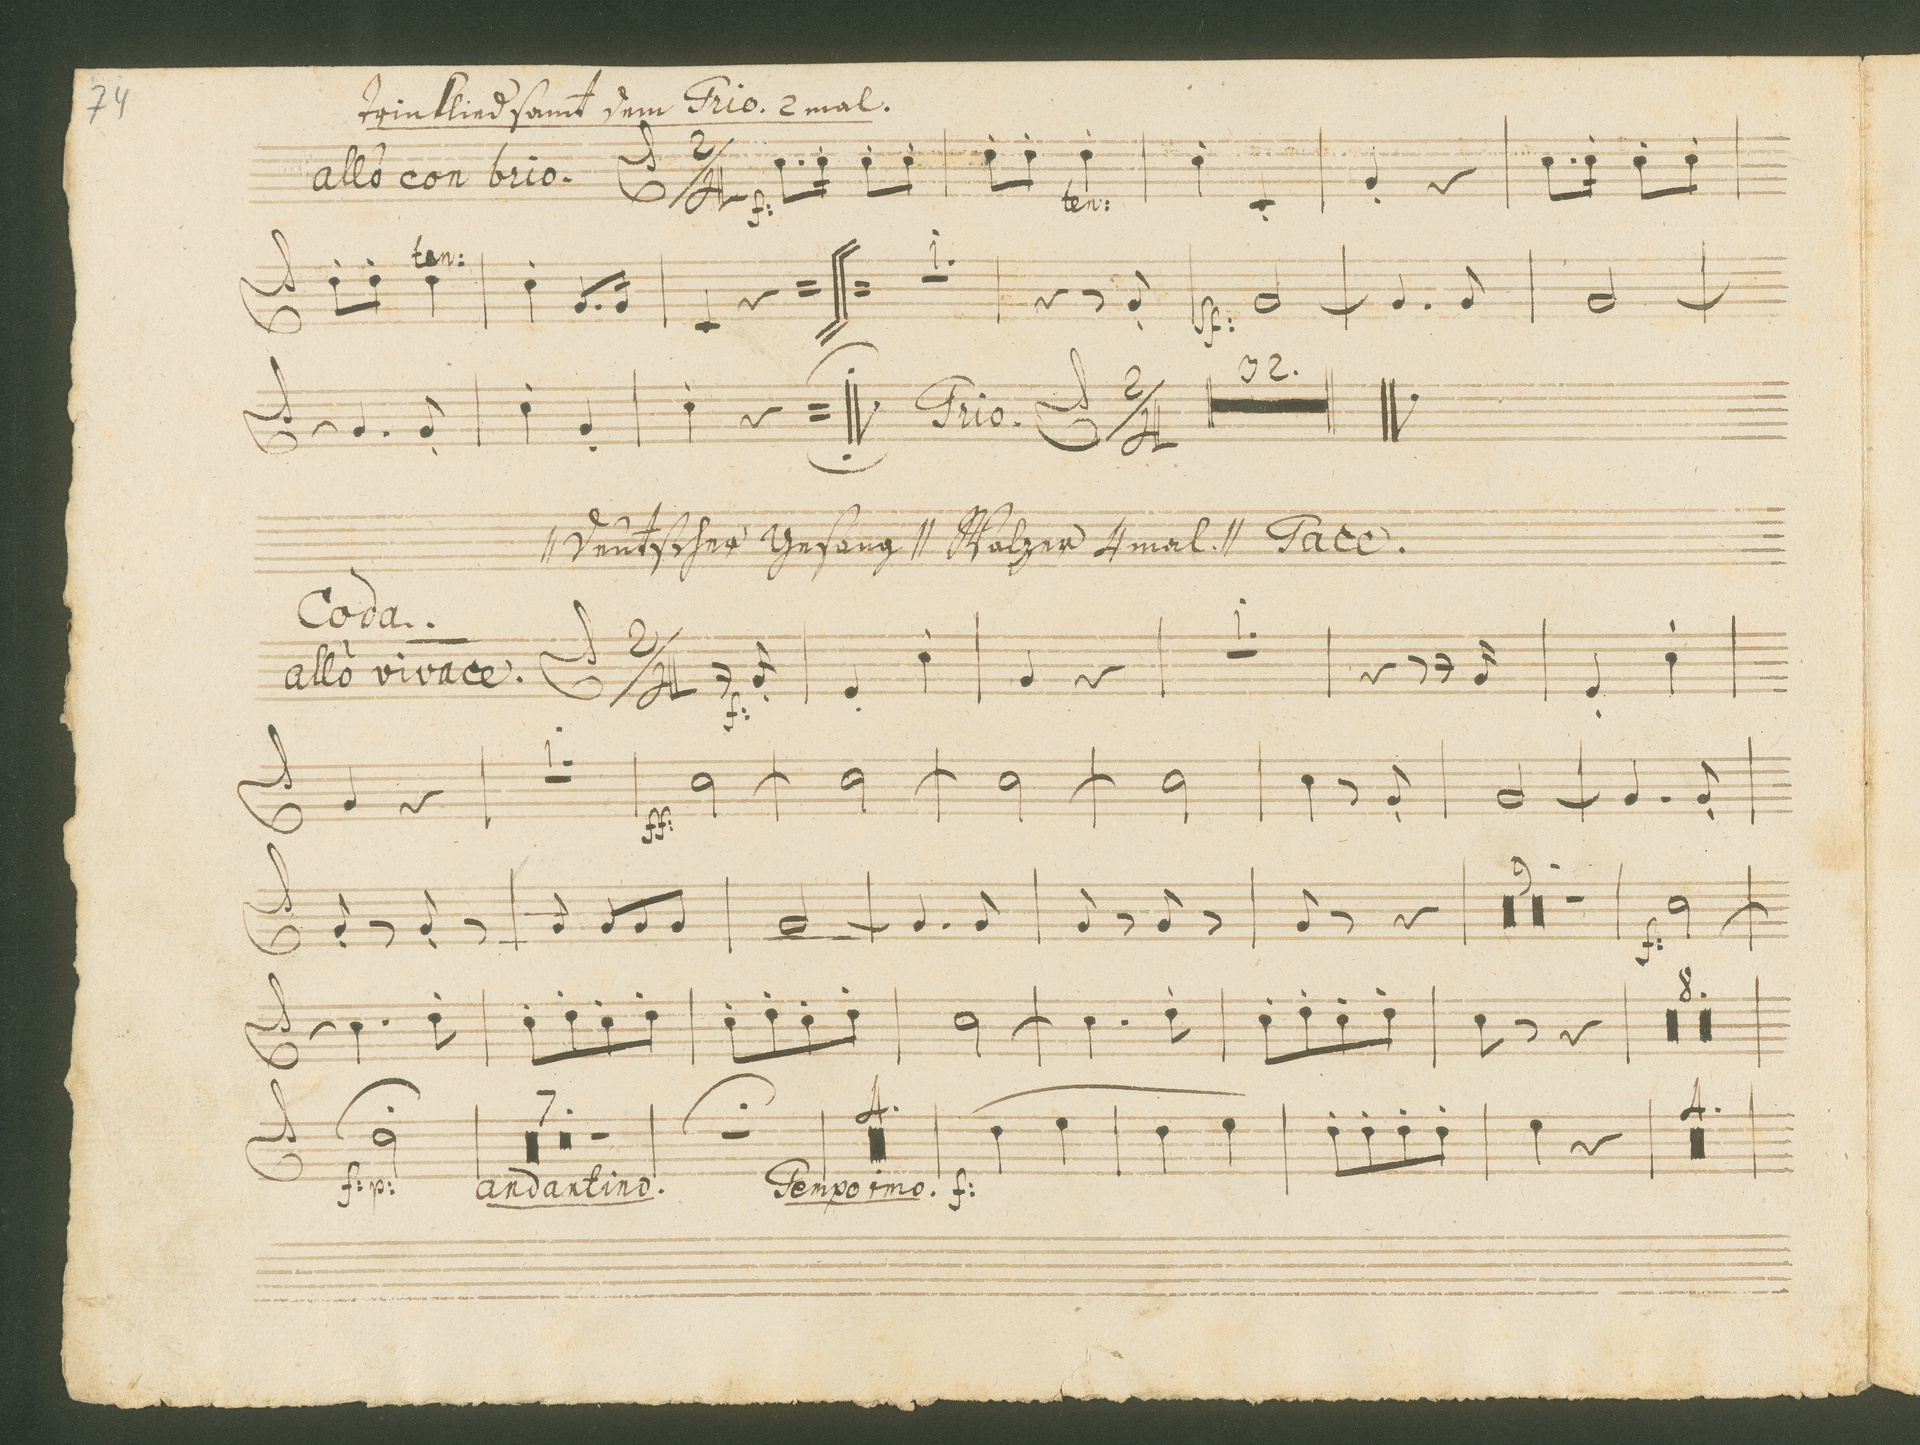 74
Trinklied samt dem Trio. 2 mal.
allò con brio. 2/4
f: ten:
ten: 1.
sf:
Trio. 2/4 32.
// Deutscher Gesang // Walzer 4 mal. // Tace.
Coda..
allò vivace. 2/4 f: 1.
1. ff:
9. f:
8.
7. 4. 4.
f: p: andantino. Tempo imo. f: